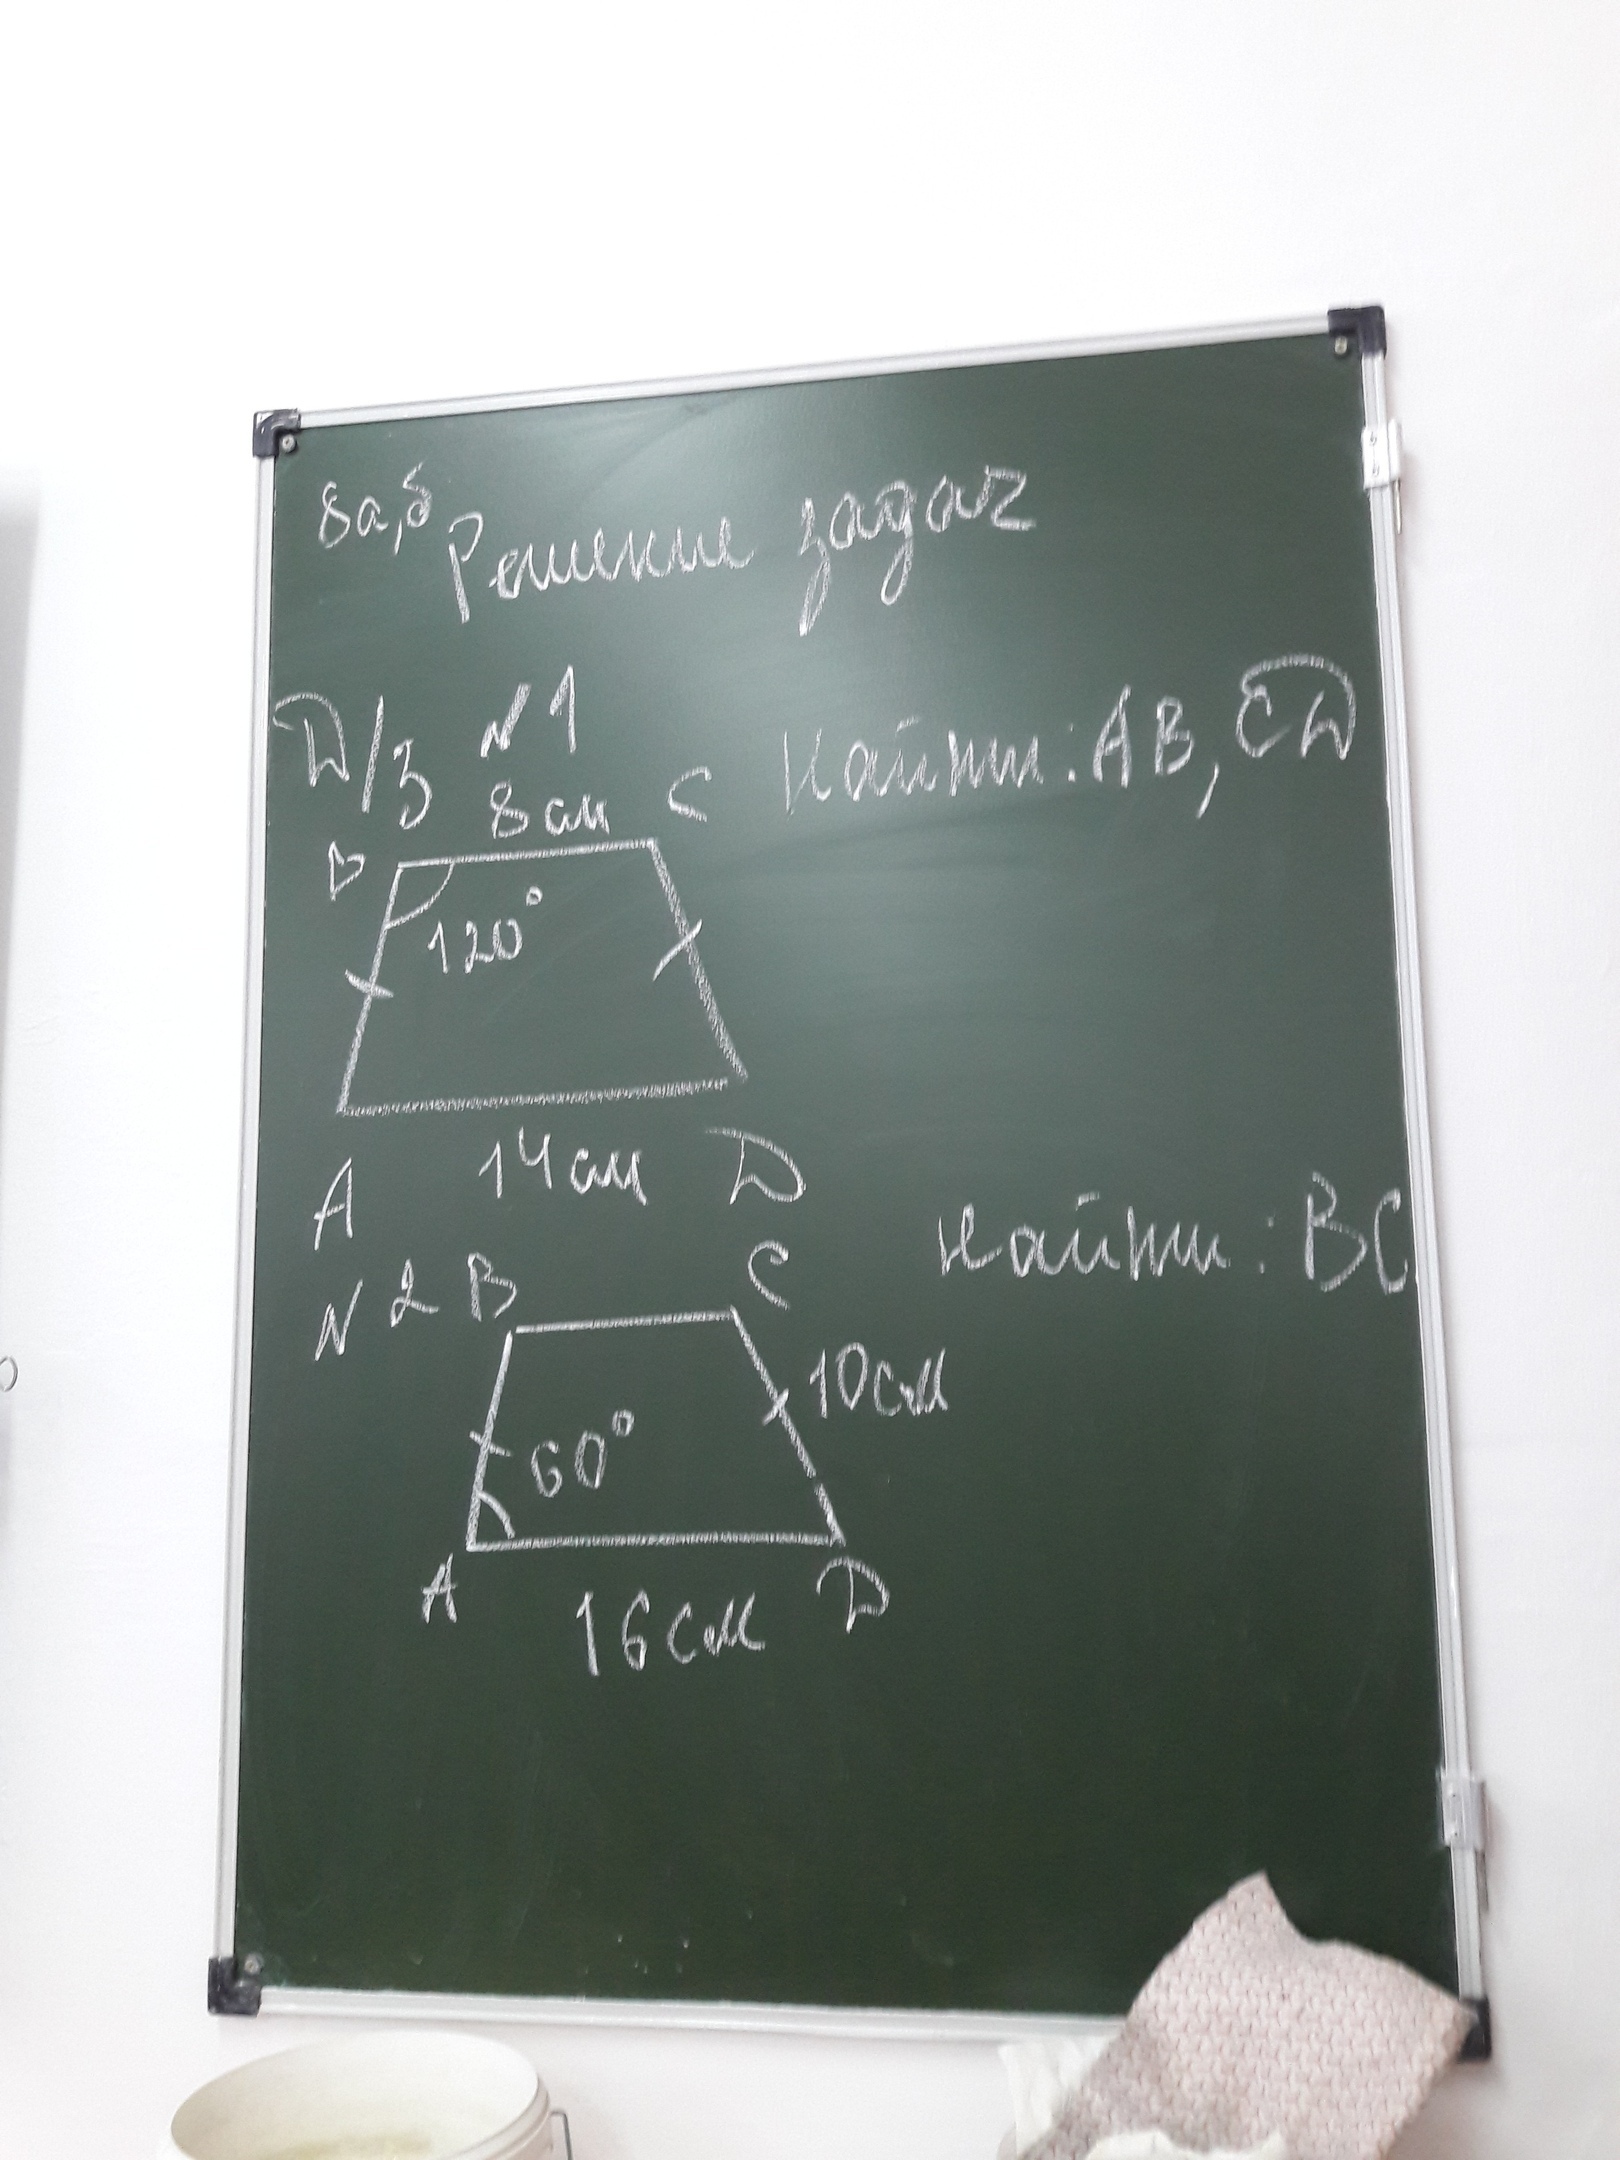 8а,б
Решение задач
D/з №1
Найти: AB, CD
8 см
B
C
120°
A
14 см
D
№2
Найти: BC
B
C
10 см
60°
A
16 см
D